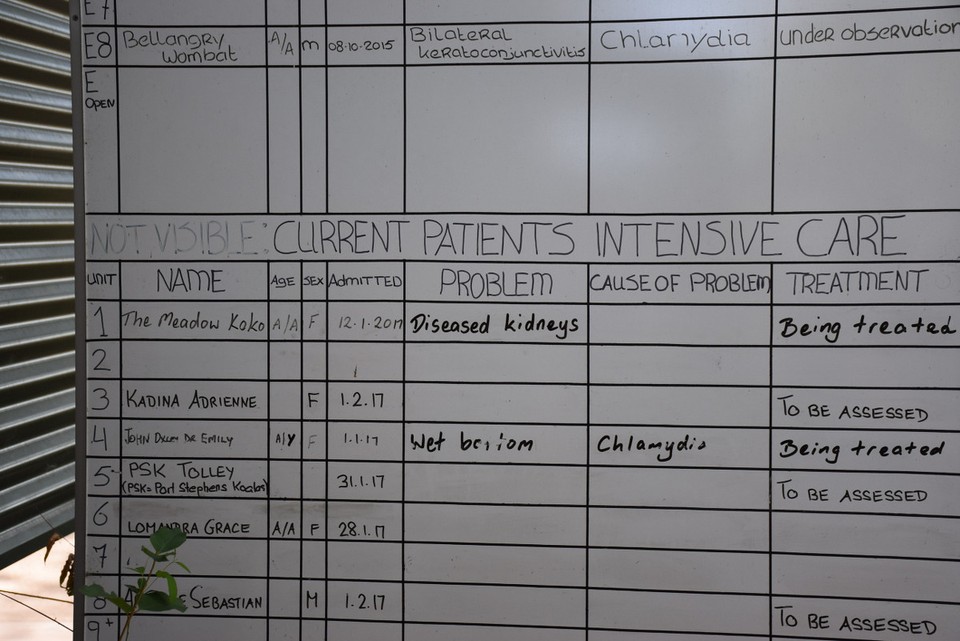 E7
E8 Bellangry Wombat A/A m 08·10·2015 Bilateral keratoconjunctivitis Chlamydia under observation
E OPEN
NOT VISIBLE: CURRENT PATIENTS INTENSIVE CARE
UNIT NAME AGE SEX ADMITTED PROBLEM CAUSE OF PROBLEM TREATMENT
1 The Meadow Koko A/A F 12·1·2017 Diseased kidneys Being treated
2
3 KADINA ADRIENNE F 1.2.17 TO BE ASSESSED
4 JOHN DR EMILY A/Y F 1.1.17 Wet bottom Chlamydia Being treated
5 PSK TOLLEY 31.1.17 TO BE ASSESSED
(PSK= Port Stephens Koalas)
6 LOMANDRA GRACE A/A F 28.1.17
7
8 SEBASTIAN M 1.2.17 TO BE ASSESSED
9+